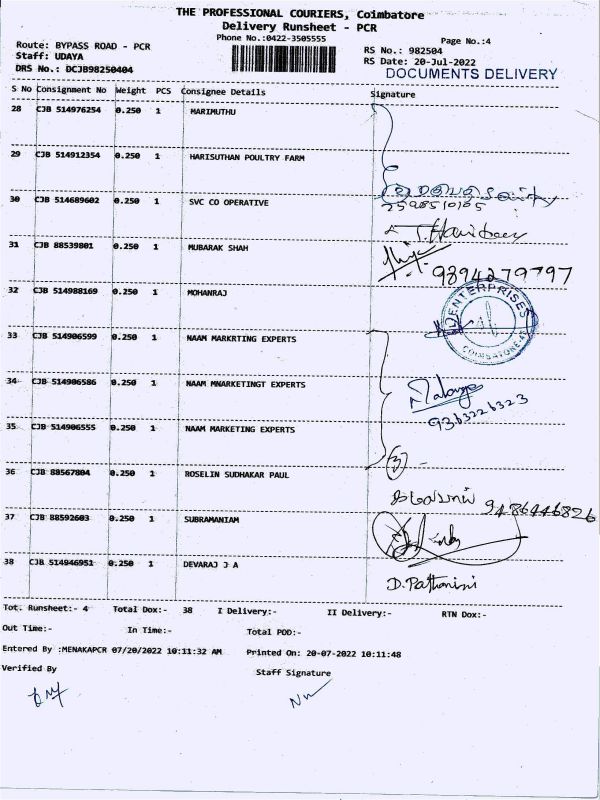 THE PROFESSIONAL COURIERS, Coimbatore
Delivery Runsheet - PCR
Phone No.:0422-3505555
Page No.:4
Route: BYPASS ROAD - PCR
RS No.: 982504
Staff: UDAYA
RS Date: 20-Jul-2022
DRS No.: DCJB98250404
DOCUMENTS DELIVERY
S No Consignment No Weight PCS Consignee Details Signature
28 CJB 514976254 0.250 1 MARIMUTHU
29 CJB 514912354 0.250 1 HARISUTHAN POULTRY FARM
30 CJB 514689602 0.250 1 SVC CO OPERATIVE
31 CJB 88539801 0.250 1 MUBARAK SHAH
9894279797
32 CJB 514988169 0.250 1 MOHANRAJ
ENTERPRISES
COIMBATORE
33 CJB 514906599 0.250 1 NAAM MARKRTING EXPERTS
34 CJB 514906586 0.250 1 NAAM MNARKETINGT EXPERTS
9363226323
35 CJB 514906555 0.250 1 NAAM MARKETING EXPERTS
3
36 CJB 88567804 0.250 1 ROSELIN SUDHAKAR PAUL
9486446826
37 CJB 88592603 0.250 1 SUBRAMANIAM
38 CJB 514946951 0.250 1 DEVARAJ J A
Tot. Runsheet:- 4 Total Dox:- 38 I Delivery:- II Delivery:- RTN Dox:-
Out Time:- In Time:- Total POD:-
Entered By :MENAKAPCR 07/20/2022 10:11:32 AM Printed On: 20-07-2022 10:11:48
Verified By Staff Signature